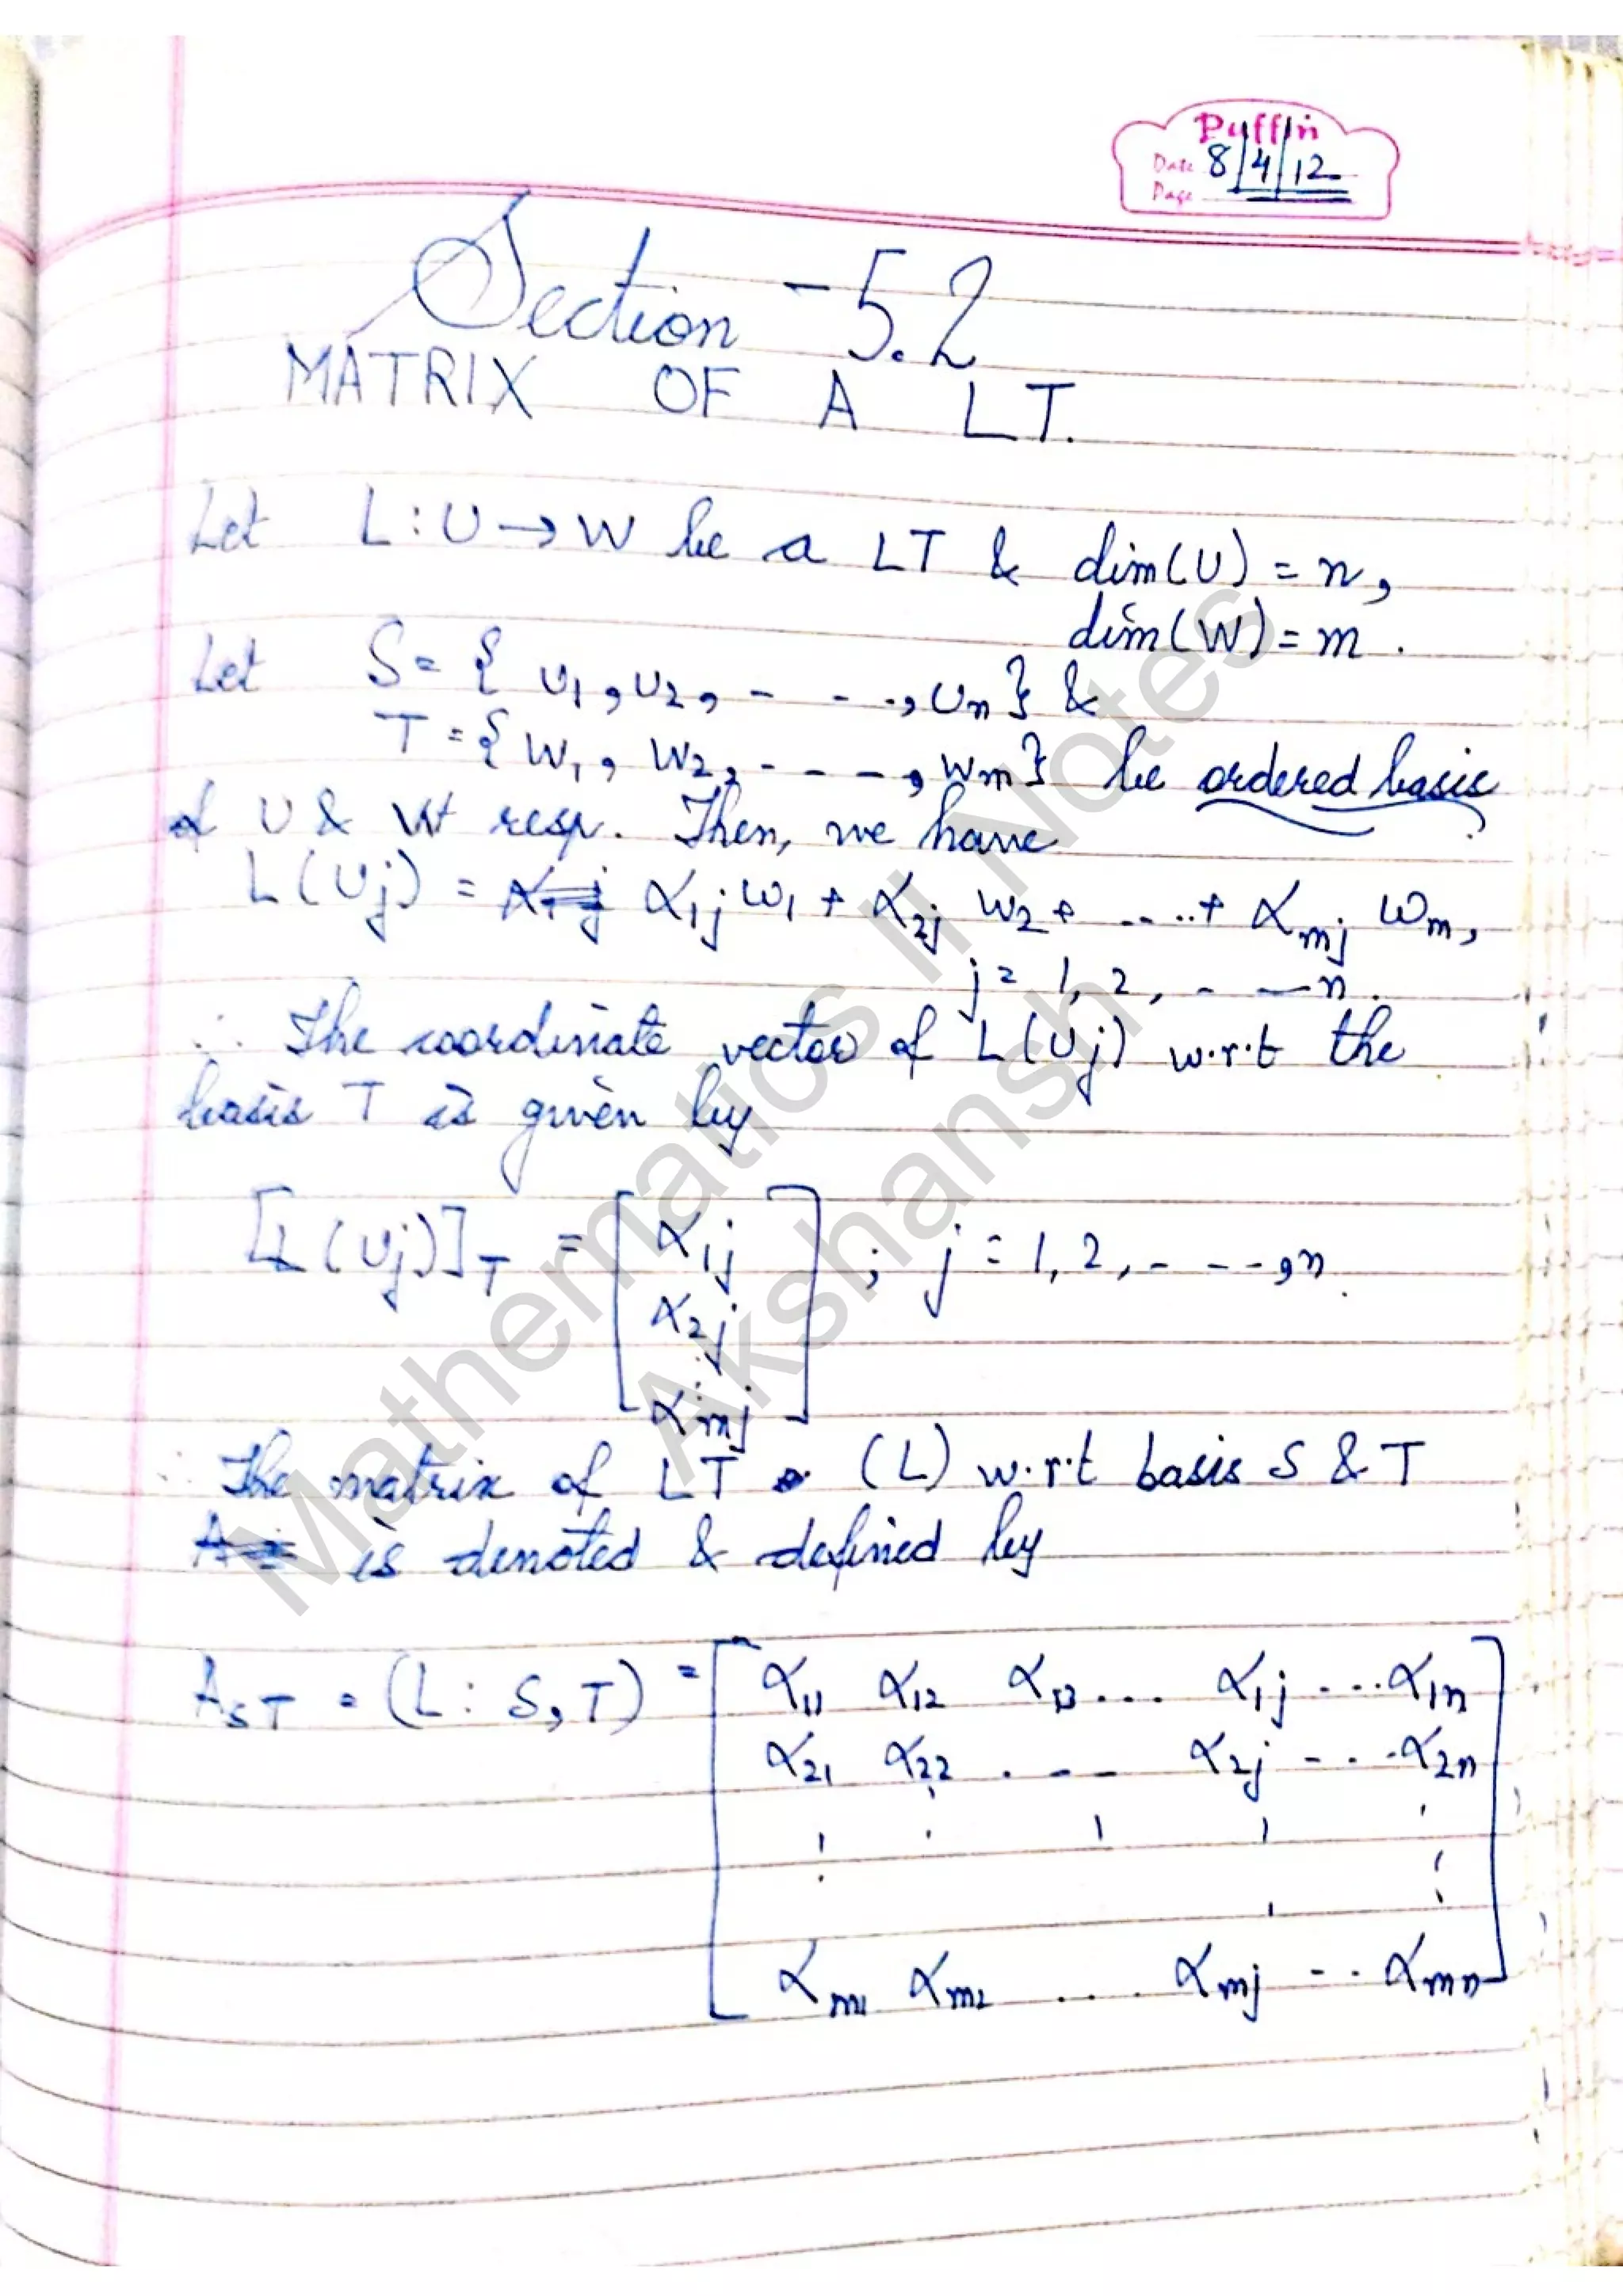 Puffin
Date 8/4/12
Page
Section - 5.2
MATRIX OF A LT.
Let L : U → W be a LT & dim(U) = n,
dim(W) = m .
Let S = { u1, u2, - - .., un } &
T = { w1, w2, - - - -, wm } be ordered basis
of U & W resp. Then, we have
L(uj) = α1j w1 + α2j w2 + ....+ αmj wm,
j = 1, 2, - - n .
∴ The coordinate vector of L(uj) w.r.t the
basis T is given by
[L(uj)]T = [ α1j ; j = 1, 2, - - - -, n .
α2j
⋮
αmj ]
∴ The matrix of LT (L) w.r.t basis S & T
is denoted & defined by
AST = (L : S, T) = [ α11 α12 α13 ... α1j ... α1n
α21 α22 . - - - α2j - - .. α2n
⋮ ⋮ ⋮ ⋮ ⋮
αm1 αm2 .... αmj - .. αmn ]
Mathematics II Notes
Akshansh